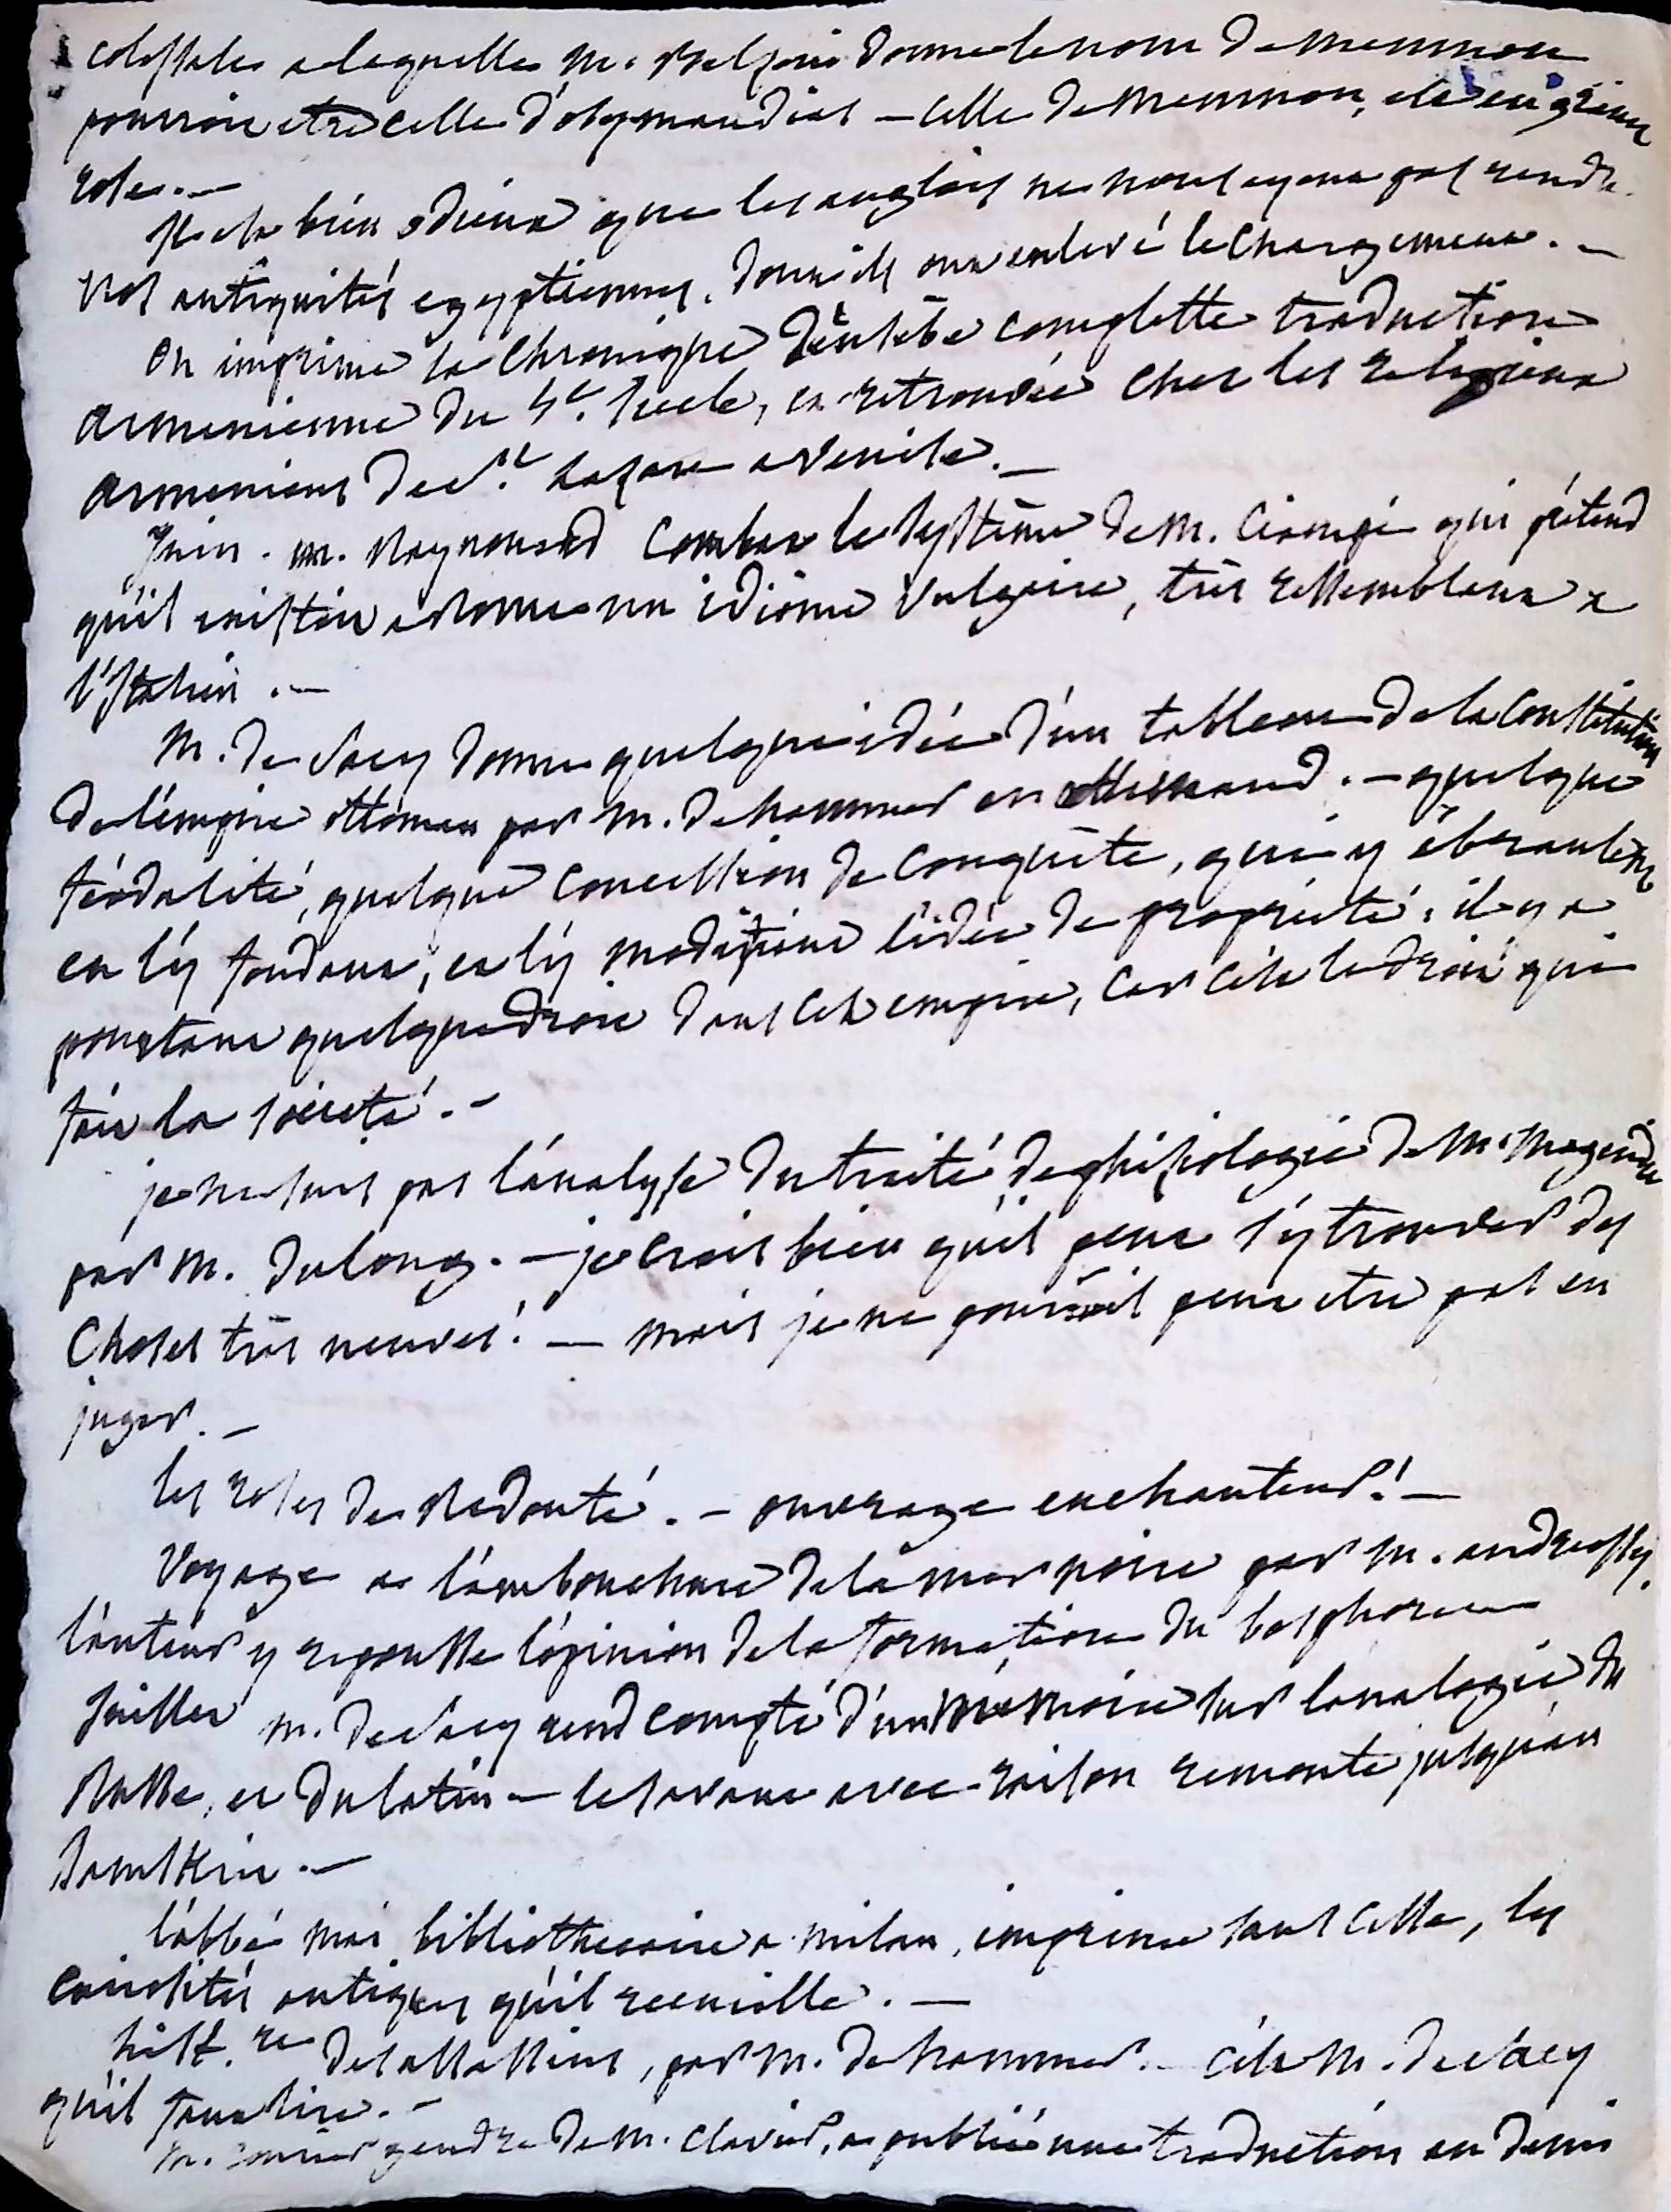 colossales a laquelle M. Belzoni donne le nom de Memnon
pourroit etre celle d'osymandias — celle de Memnon, est en granit
rose. —
Il est bien odieux que les anglois ne nous ayent pas rendu
nos antiquités egyptiennes, dont ils ont enlevé le chargement. —
On imprime la chronique d'eusèbe complette traduction
armenienne du 4e. siecle, et retrouvée chez les religieux
armeniens de St. Lazare a Venise. —
Juin. M. Raynouard combat le systême de M. Ciampi qui prétend
qu'il existoit a Rome un idiome vulgaire, très ressemblant a
l'Italien. —
M. de Sacy donne quelque idée d'un tableau de la Constitution
de l'empire ottoman par M. de hammer en allemand. — quelque
féodalité, quelque concession de conquête, qui y ébranlent
en l'y fondant, et l'y modifient l'idée de propriété; il y a
pourtant quelque droit dans cet empire, car c'est le droit qui
fait la societé. —
je ne suis pas l'analyse du traité de phisiologie de M. Magendie
par M. Dulong. — je crois bien qu'il peut s'y trouver des
choses très neuves! — mais je ne pourrois peut etre pas en
juger. —
les roses de Redouté. — ouvrage enchanteur! —
Voyage a l'embouchure de la mer noire par M. andreossy.
l'auteur y repousse l'opinion de la formation du bosphore
Juillet M. de Sacy rend compte d'un mémoire sur l'analogie du
Russe, et du latin — le savant avec raison remonte jusqu'au
samskrit. —
l'abbé mai bibliothecaire a milan, imprime sans cesse, les
curiosités antiques qu'il recueille. —
hist.re des assassins, par M. de hammer. — c'est M. de Sacy
qu'il faut lire. —
M. Courier gendre de M. Clavier, a publié une traduction en deux